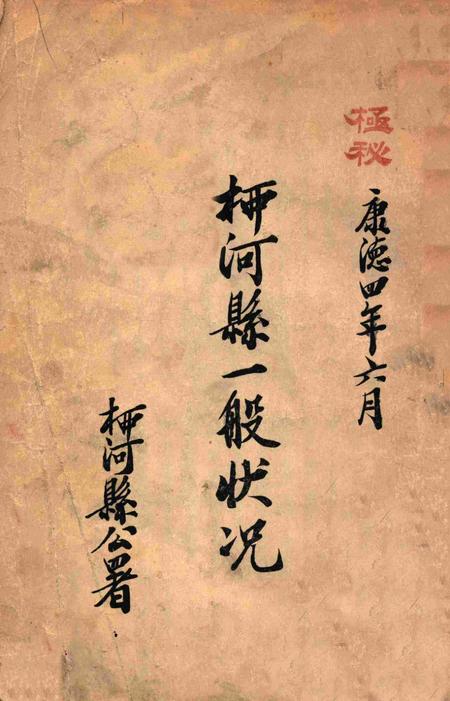 極秘
康徳四年六月
柳河縣一般状況
柳河縣公署